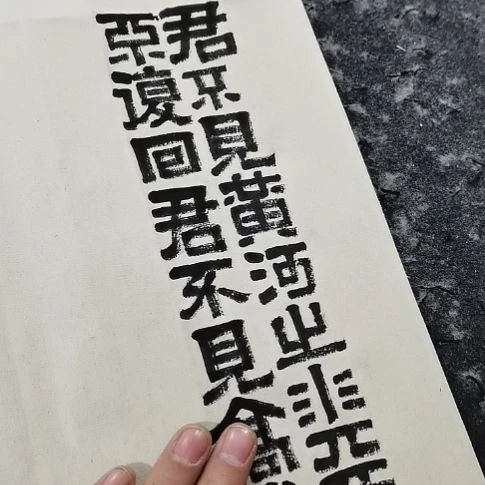 君不見黃河之水天
不復回君不見高